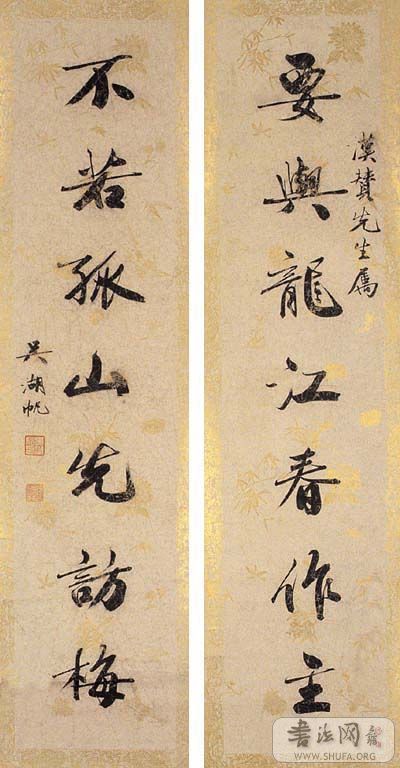 漢贊先生屬
要與龍江春作主
不若孤山先訪梅
吴湖帆
書法网
WWW.SHUFA.ORG